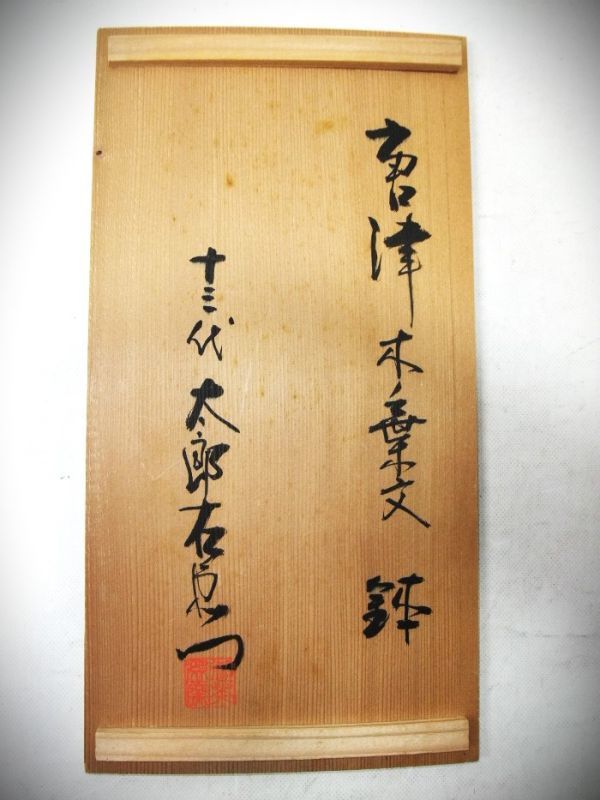 唐津木ノ葉文鉢
十三代太郎右衛門